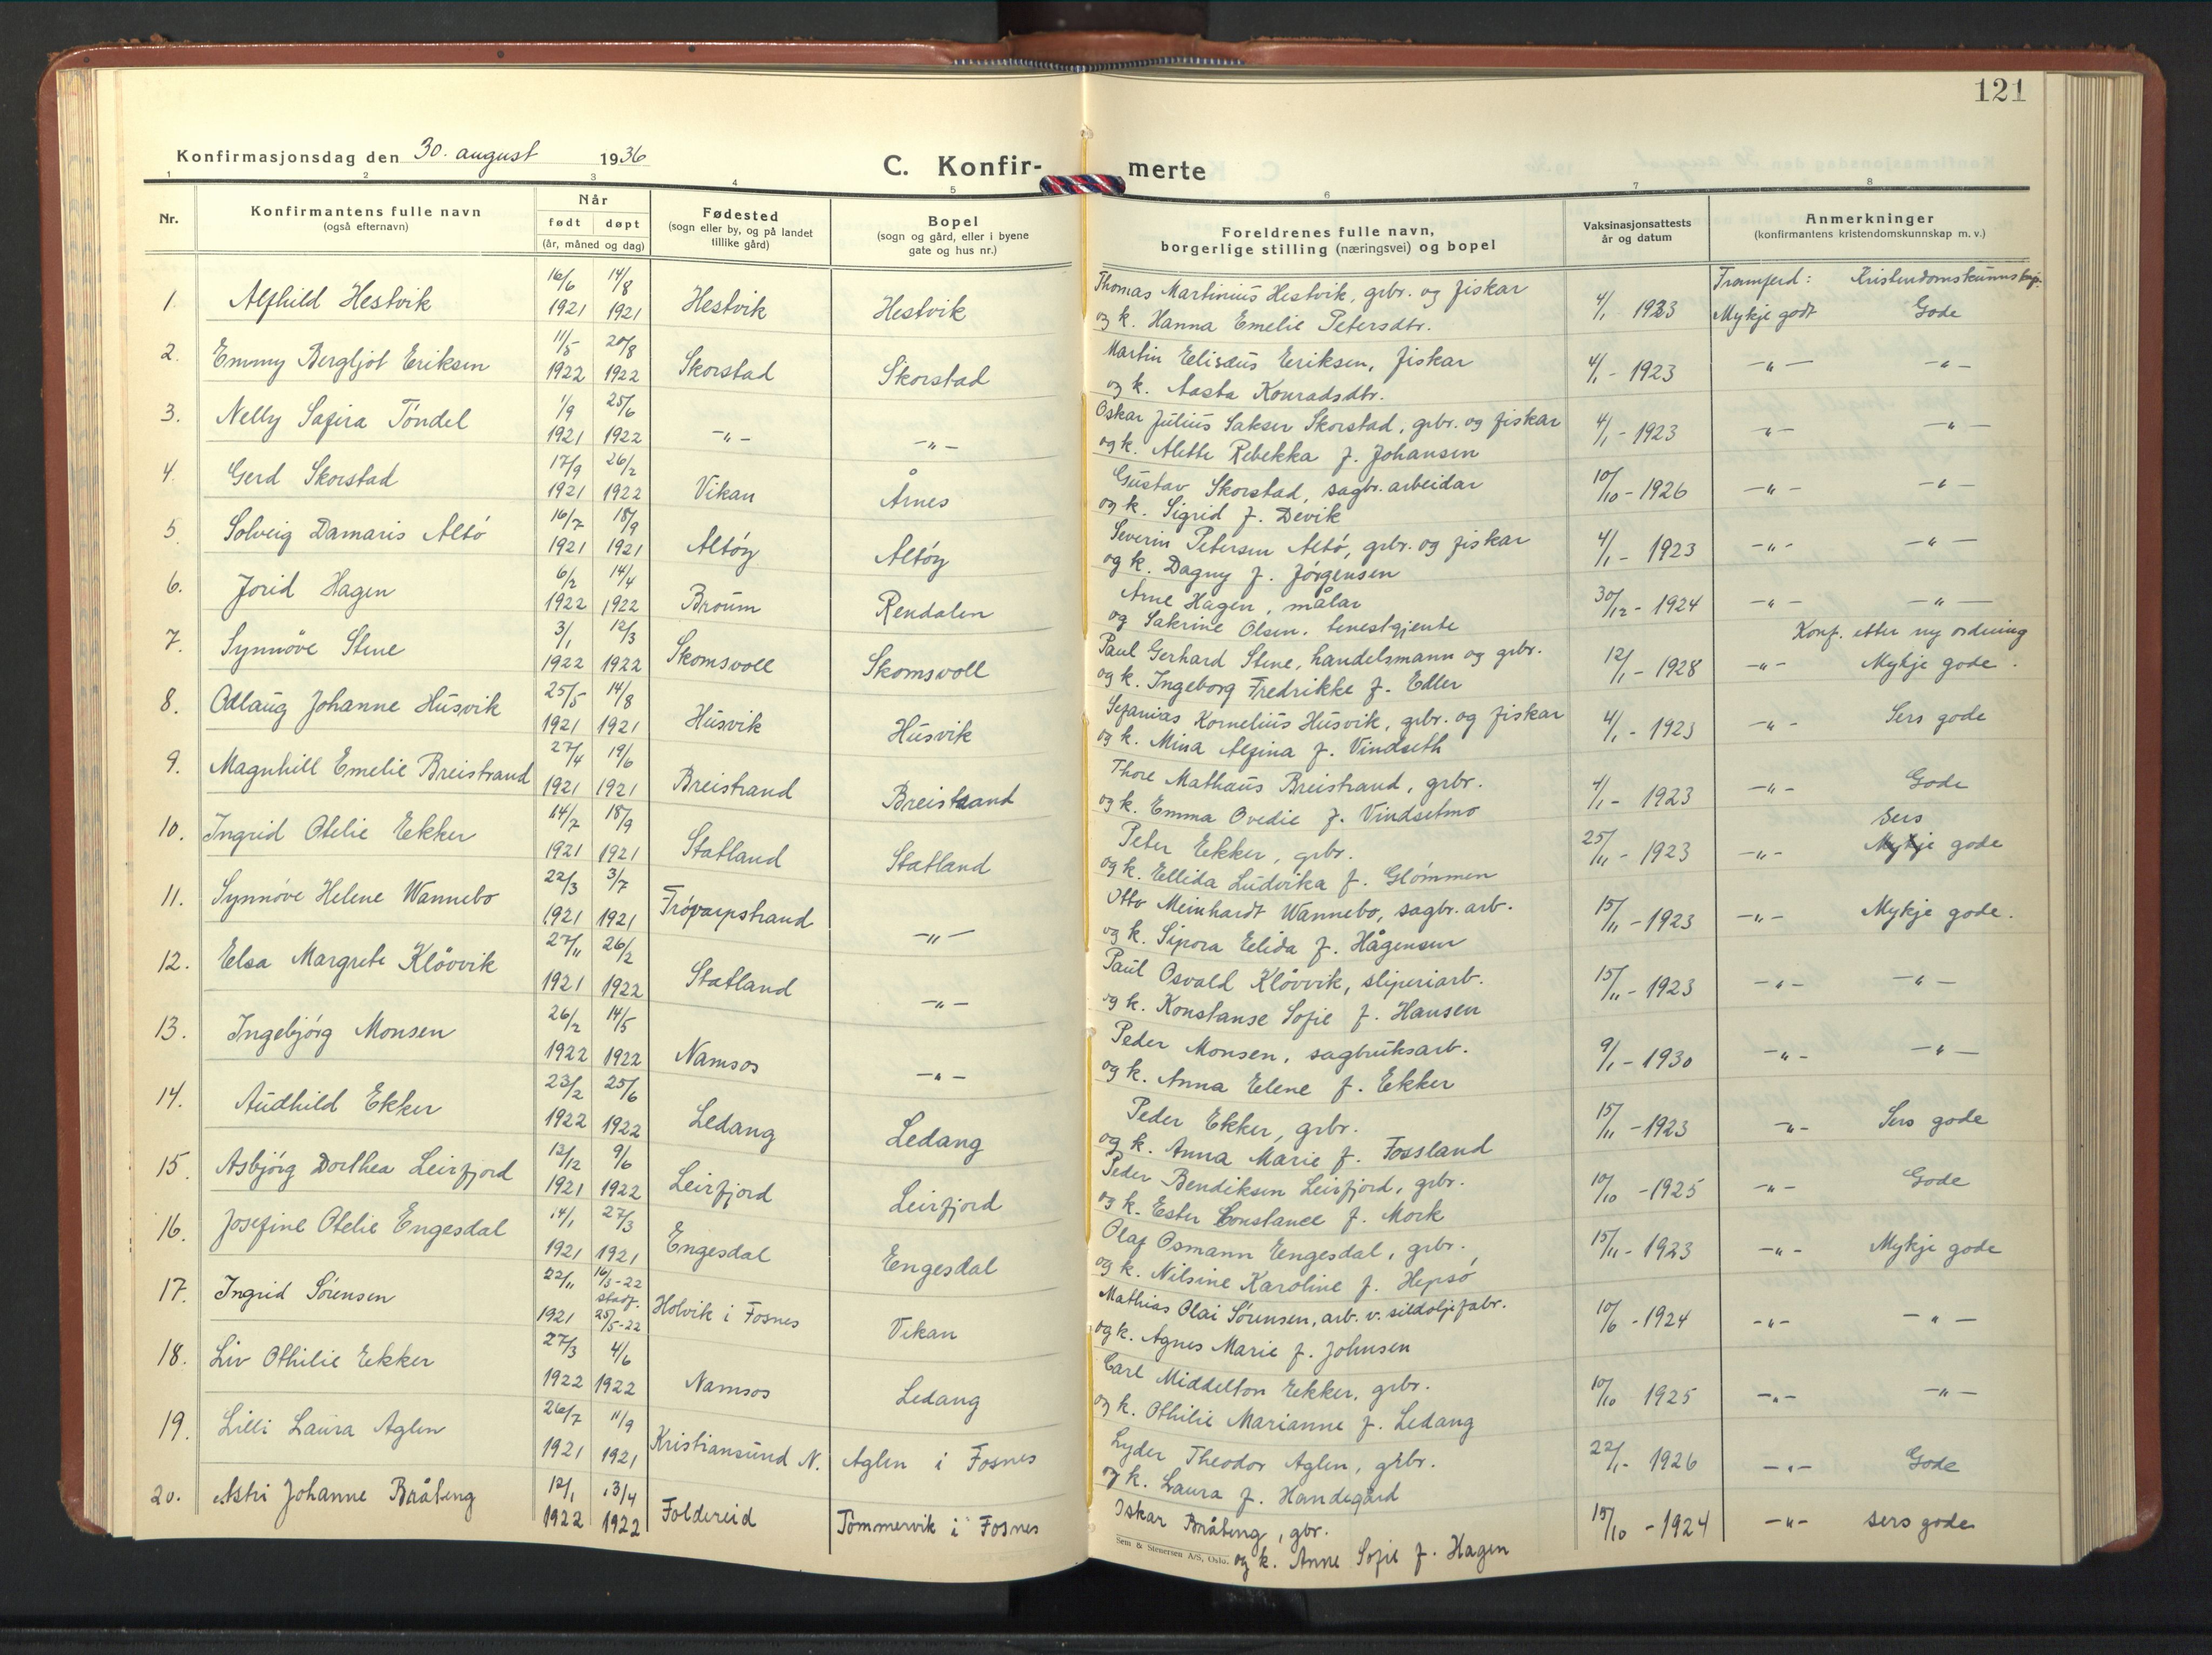 121
Konfirmasjonsdag den 30. august 1936
C. Konfir- merte
1 2 3 4 5 6 7 8
Nr.
Konfirmantens fulle navn
(også efternavn)
Når
født døpt
(år, måned og dag)
Fødested
(sogn eller by, og på landet
tillike gård)
Bopel
(sogn og gård, eller i byene
gate og hus nr.)
Foreldrenes fulle navn,
borgerlige stilling (næringsvei) og bopel
Vaksinasjonsattests
år og datum
Anmerkninger
(konfirmantens kristendomskunnskap m. v.)
Framferd: Kristendomskunnskap.
1. Alfhild Hestvik 16/6 1921 14/8 1921 Hestvik Hestvik
Thomas Martinius Hestvik, grbr. og fiskar
og k. Hanna Emelie Petersdtr.
4/1 1923 Mykje godt Gode
2. Emmy Bergljot Eriksen 11/5 1922 20/8 1922 Skorstad Skorstad
Martin Elisæus Eriksen, fiskar
og k. Aasta Konradsdtr.
4/1 - 1923 -"- -"-
3. Nelly Safira Tøndel 1/9 1921 25/6 1922 -"- -"-
Oskar Julius Sakser Skorstad, grbr. og fiskar
og k. Alette Rebekka f. Johansen
4/1 - 1923 -"- -"-
4. Gerd Skorstad 17/9 1921 26/2 1922 Vikan Årnes
Gustav Skorstad, sagbr. arbeidar
og k. Sigrid f. Devik
10/10 - 1926 -"- -"-
5. Solveig Damaris Altø 16/7 1921 18/9 1921 Altøy Altøy
Severin Petersen Altø, grbr. og fiskar
og k. Dagny f. Jørgensen
4/1 - 1923 -"- -"-
6. Jorid Hagen 6/2 1922 14/4 1922 Brøum Rendalen
Arne Hagen, målar
og Sakrine Olsen, tenestgjente
30/12 - 1924 -"- -"-
Konf. etter ny ordning
7. Synnøve Stene 3/1 1922 12/3 1922 Skomsvoll Skomsvoll
Paul Gerhard Stene, handelsmann og grbr.
og k. Ingeborg Fredrikke f. Edler
12/1 - 1928 -"- Mykje gode.
8. Odlaug Johanne Husvik 25/5 1921 14/8 1921 Husvik Husvik
Sefanias Kornelius Husvik, grbr. og fiskar
og k. Mina Alfina f. Vindseth
4/1 - 1923 -"- Sers gode
9. Magnhill Emelie Breistrand 27/4 1921 19/6 1921 Breistrand Breistrand
Thore Mathæus Breistrand, grbr.
og k. Emma Ovedie f. Vindsetmo
4/1 - 1923 -"- Gode
10. Ingrid Otelie Ekker 14/7 1921 18/9 1921 Statland Statland
Peter Ekker, grbr.
og k. Ellida Ludvika f. Glømmen
25/11 - 1923 -"- Sers
Mykje gode
11. Synnøve Helene Wannebo 22/3 1921 3/7 1921 Frøvarpstrand -"-
Otto Meinhardt Wannebo, sagbr. arb.
og k. Sipora Elida f. Hågensen
15/11 - 1923 -"- Mykje gode.
12. Elsa Margrete Kløvvik 27/11 1921 26/2 1922 Statland -"-
Paul Osvald Kløvvik, sliperiarb.
og k. Konstanse Sofie f. Hansen
15/11 - 1923 -"- -"-
13. Ingebjørg Monsen 26/2 1922 14/5 1922 Namsos -"-
Peder Monsen, sagbruksarb.
og k. Anna Elene f. Ekker
9/1 - 1930 -"- -"-
14. Audhild Ekker 23/2 1922 25/6 1922 Ledang Ledang
Peder Ekker, grbr.
og k. Anna Marie f. Fossland
15/11 - 1923 -"- Sers gode
15. Asbjørg Dorthea Leirfjord 12/12 1921 9/6 1922 Leirfjord Leirfjord
Peder Bendiksen Leirfjord, grbr.
og k. Ester Constance f. Mork
10/10 - 1925 -"- Gode
16. Josefine Otelie Engesdal 14/1 1921 27/3 1921 Engesdal Engesdal
Olaf Osmann Engesdal, grbr.
og k. Nilsine Karoline f. Hepsø
15/11 - 1923 -"- Mykje gode
17. Ingrid Sørensen 22/11 1921 16/3-22 stadf. 25/5-22 Holvik i Fosnes Vikan
Mathias Olai Sørensen, arb. v. sildoljefabr.
og k. Agnes Marie f. Johnsen
10/6 - 1924 -"- -"-
18. Liv Othilie Ekker 27/3 1922 4/6 1922 Namsos Ledang
Carl Middelton Ekker, grbr.
og k. Othilie Marianne f. Ledang
10/10 1925 -"- -"-
19. Lilli Laura Aglen 26/7 1921 11/9 1921 Kristiansund N. Aglen i Fosnes
Lyder Theodor Aglen, grbr.
og k. Laura f. Handegård
22/1 - 1926 -"- Gode
20. Astri Johanne Bråteng 12/1 1922 13/4 1922 Foldereid Tømmervik i Fosnes
Oskar Bråteng, gbr.
og k. Anne Sofie f. Hagen
15/10 - 1924 -"- sers gode
Sem & Stenersen A/S, Oslo.